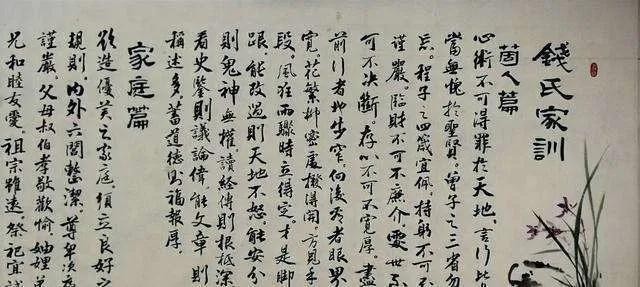 錢氏家訓
箇人篇
心術不可得罪於天地,言行皆
當無愧於聖賢。曾子之三省勿
忘。程子之四箴宜佩。持躬不可
謹嚴。臨財不可不廉介。處世
可不決斷。存心不可不寬厚。盡
前行者地步窄,向後看者眼界
寬。花繁柳密處撥得開,方見手
段。風狂雨驟時立得定,才是腳
跟。能改過則天地不怒,能安分
則鬼神無權。讀經傳則根柢深
看史鑒則議論偉。能文章則
稱述多,蓄道德則福報厚。
家庭篇
欲造優美之家庭,須立良好之
規則。內外六閭整潔,尊卑次
謹嚴。父母叔伯孝敬歡愉,妯娌
兄和睦友愛。祖宗雖遠,祭祀宜